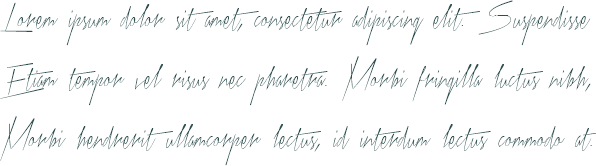 Lorem ipsum dolor sit amet, consectetur adipiscing elit. Suspendisse
Etiam tempor vel risus nec pharetra. Morbi fringilla luctus nibh,
Morbi hendrerit ullamcorper lectus, id interdum lectus commodo at.